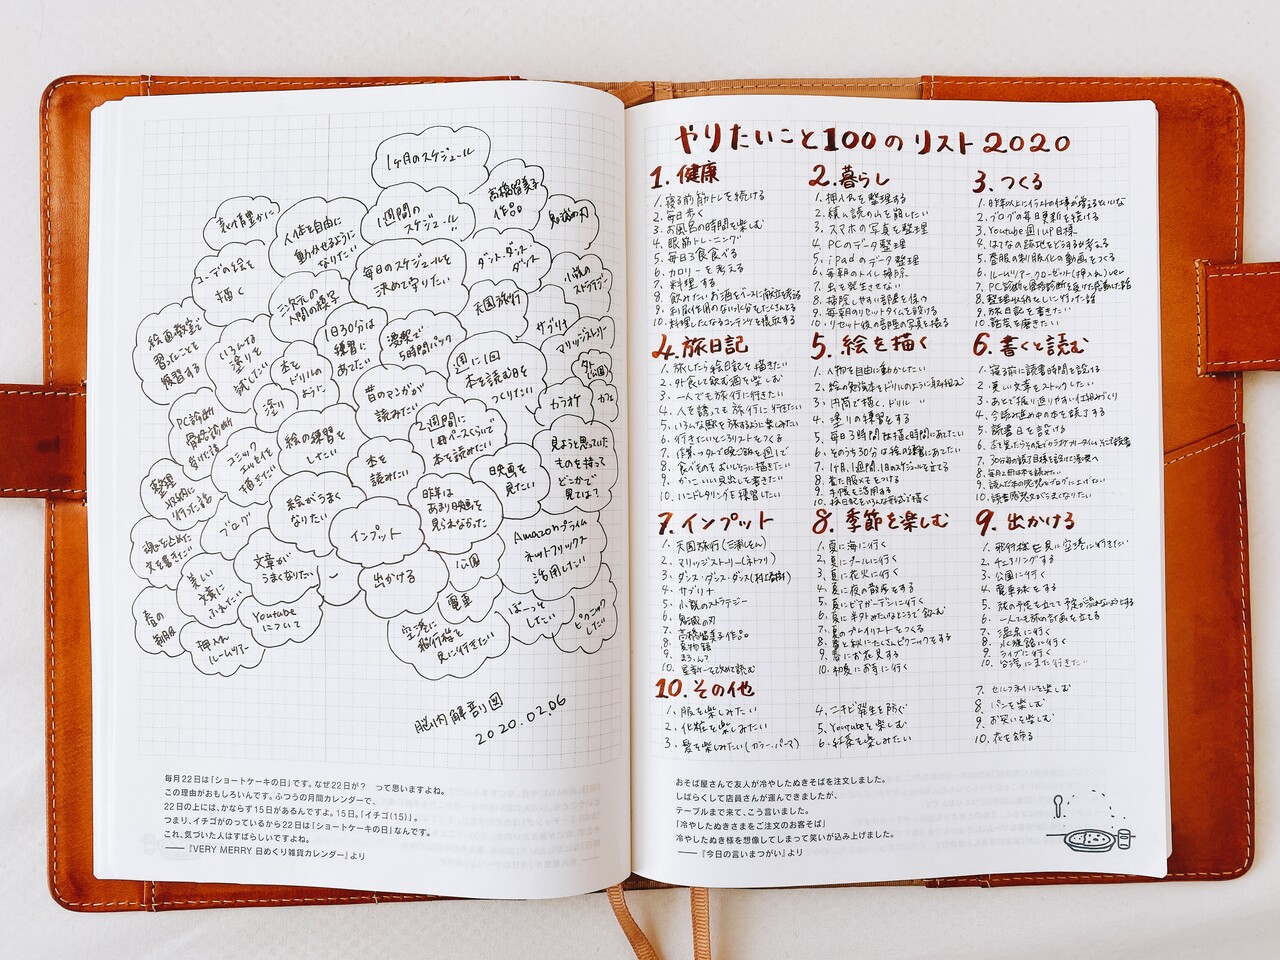 1ヶ月のスケジュール
高橋留美子
作品
鬼滅の刃
表情豊かに
人体を自由に
動かせるように
なりたい
1週間の
スケジュール!!
コーデの絵を
描く
毎日のスケジュールを
決めて守りたい
ダンス・ダンス・
ダンス
小説の
ストラテジー
三次元の
人間の模写
天国旅行
サプリナ
マリッジストーリー
絵画教室で
習ったことを
復習する
いろんな
塗りを
試したい
本を
ドリルの
ように
1日30分は
練習に
あてたい
漫喫で
5時間パック
週に1回
本を読む日を
つくりたい
カラオケ
カフェ
塗り
昔のマンガが
読みたい
PC診断
骨格診断
受けた話
コミック
エッセイを
描きたい
絵の練習を
したい
2週間に
1冊ペースくらいで
本を読みたい
見ようと思っていた
ものを持って
どこかで
見ては?
本を
読みたい
映画を
見たい
整理
収納に
行った話
絵がうまく
なりたい
昨年は
あまり映画を
見られなかった
ブログ
インプット
Amazonプライム
ネットフリックス
活用したい
文を書きたい
文章が
うまくなりたい
出かける
公園
美しい
文章に
ふれたい
電車
春の
制服
Youtube
について
空港に
飛行機を
見に行きたい
ぼーっと
したい
ピクニック
したい
押入れ
ルームツアー
脳内解剖図
2020.02.06
毎月22日は「ショートケーキの日」です。なぜ22日が? って思いますよね。
この理由がおもしろいんです。ふつうの月間カレンダーで、
22日の上には、かならず15日があるんですよ。15日。「イチゴ(15)」。
つまり、イチゴがのっているから22日は「ショートケーキの日」なんです。
これ、気づいた人はすばらしいですよね。
——『VERY MERRY 日めくり雑貨カレンダー』より
やりたいこと100のリスト2020
1.健康
1. 寝る前筋トレを続ける
2. 毎日歩く
3. お風呂の時間を楽しむ
4. 眼筋トレーニング
5. 毎日3食食べる
6. カロリーを考える
7. 料理する
8. 飲みたいお酒をベースに献立を考える
9. 利尿作用のない水分をたくさんとる
10. 料理したくなるコンテンツを摂取する
2.暮らし
1. 押入れを整理する
2. 積ん読の山を崩したい
3. スマホの写真を整理
4. PCのデータ整理
5. iPadのデータ整理
6. 毎朝のトイレ掃除
7. 虫を発生させない
8. 掃除しやすい部屋を保つ
9. 毎朝のリセットタイムを設ける
10. リセット後の部屋の写真を撮る
3.つくる
1. 昨年以上にイラストの仕事が増えるといいな
2. ブログの毎日更新を続ける
3. Youtube週1UP目標
4. はてなの跡地をどうするか考える
5. 春服の制服化の動画をつくる
6. ルームツアークローゼット(押入れ)ver
7. PC診断と骨格診断を受けた感想と話
8. 整理収納レッスンに行った話
9. 旅日記を書きたい
10. 語彙を磨きたい
4.旅日記
1. 旅したら絵日記を描きたい
2. 外食と飲む酒を楽しむ
3. 一人でも旅行に行きたい
4. 人を誘っても旅行に行きたい
5. いろんな駅を旅するように楽しみたい
6. 行きたいところリストをつくる
8. 食べものをおいしそうに描きたい
9. かっこいい見出しを書きたい
10. ハンドレタリングを練習したい
5.絵を描く
1. 人物を自由に動かしたい
2. 絵の勉強本をドリルのように取り組む
4. 塗りの練習をする
5. 毎日3時間は描く時間にあてたい
6. そのうち30分は絵の練習にあてたい
7. 1ヶ月、1週間、1日のスケジュールを立てる
8. 着た服メモをつける
9. 手帳を活用する
10. 旅日記をいろんな形式で描く
6.書くと読む
1. 寝る前に読書時間を設ける
2. 美しい文章をストックしたい
3. あとで振り返りやすい仕組みづくり
4. 今読み進め中の本を読了する
5. 読書日を設ける
8. 毎月2冊は本を読みたい
9. 読んだ本の感想をブログに上げたい
10. 読書感想文がうまくなりたい
7.インプット
1. 天国旅行(三浦しをん)
2. マリッジストーリー(ネトフリ)
3. ダンス・ダンス・ダンス(村上春樹)
4. サブリナ
5. 小説のストラテジー
6. 鬼滅の刃
7. 高橋留美子作品
8. 夏物語
9. まろ、ん?
10. 星新一を改めて読む
8.季節を楽しむ
1. 夏に海に行く
2. 夏にプールに行く
3. 夏に花火に行く
4. 夏に夜の散歩をする
5. 夏にビアガーデンに行く
6. 夏に半地下みたいなところで飲む
7. 夏のプレイリストをつくる
8. 春と秋にたくさんピクニックをする
9. 春にお花見する
10. 初夏にお寺に行く
9.出かける
1. 飛行機を見に空港に行きたい
2. チェアリングする
3. 公園に行く
4. 電車旅をする
6. 一人でも旅の計画を立てる
7. 温泉に行く
8. 水族館に行く
9. ライブに行く
10. 台湾にまた行きたい
10.その他
1. 服を楽しみたい
2. 化粧を楽しみたい
3. 髪を楽しみたい(カラー、パーマ)
4. ニキビ発生を防ぐ
5. Youtubeを楽しむ
6. 紅茶を楽しみたい
7. セルフネイルを楽しむ
8. パンを楽しむ
9. お笑いを楽しむ
10. 花を飾る
おそば屋さんで友人が冷やしたぬきそばを注文しました。
しばらくして店員さんが運んできましたが、
テーブルまで来て、こう言いました。
「冷やしたぬきさまをご注文のお客そば」
冷やしたぬき様を想像してしまって笑いが込み上げました。
——『今日の言いまつがい』より